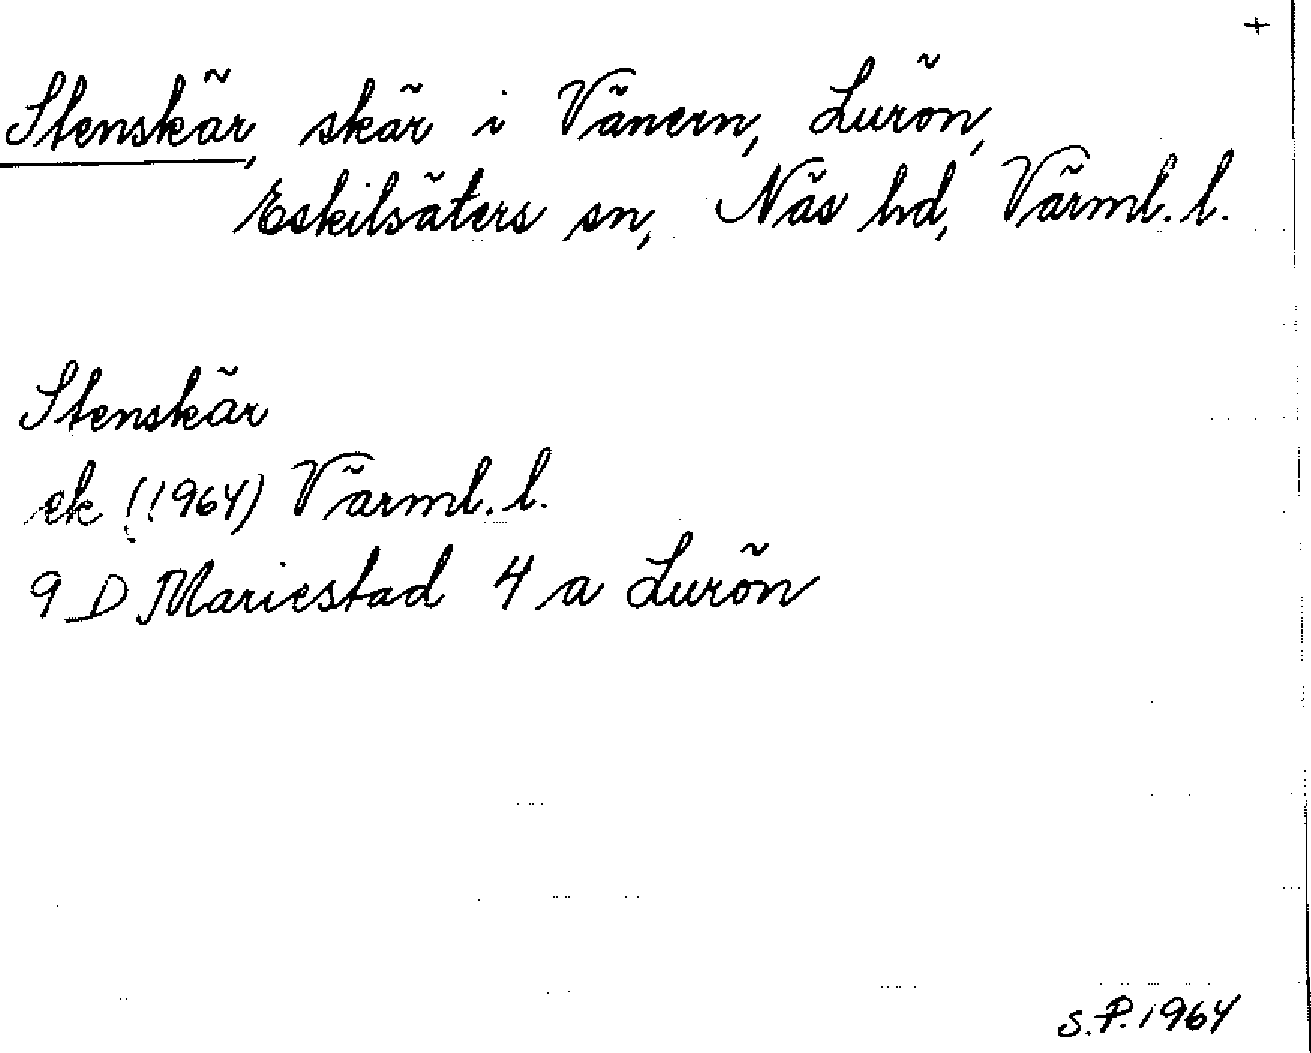 +
Stenskär, skär i Vänern, Lurön,
Eskilsäters sn, Näs hd, Värml. l.
Stenskär
ek (1964) Värml. l.
9 D Mariestad 4 a Lurön
S.P. 1964